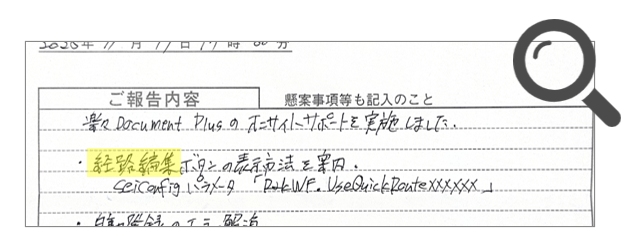 ご報告内容 懸案事項等も記入のこと
楽々Document Plusの オンサイトサポートを実施しました.
・経路編集ボタンの表示方法を案内.
seiConfig パラメータ 「RakWF.UseQuickRouteXXXXXX」